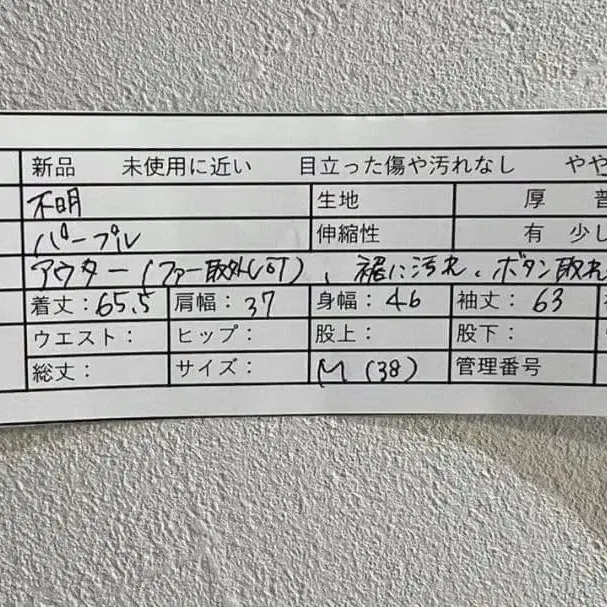 新品 未使用に近い 目立った傷や汚れなし やや
不明 生地 厚 普
パープル 伸縮性 有 少し
アウター(ファー取外し可)、裾に汚れ、ボタン取れ
着丈:65.5 肩幅:37 身幅:46 袖丈:63
ウエスト: ヒップ: 股上: 股下:
総丈: サイズ: M(38) 管理番号